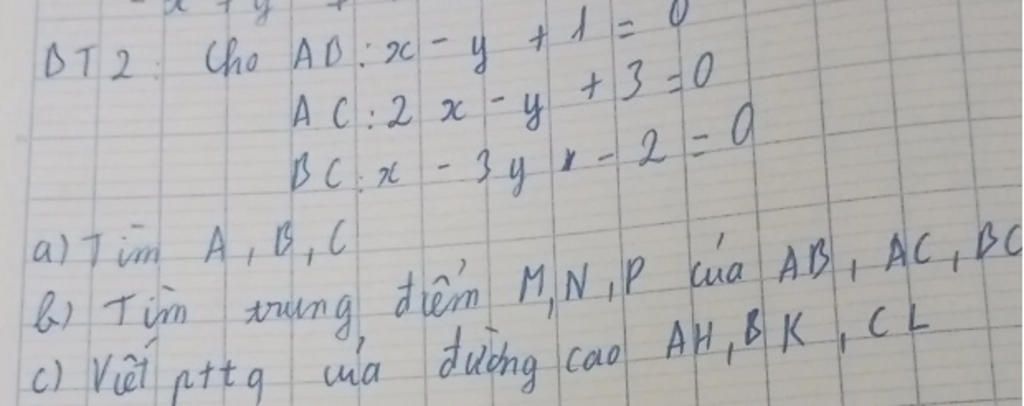 BT2: Cho AB: x - y + 1 = 0
AC: 2x - y + 3 = 0
BC: x - 3y - 2 = 0
a) Tìm A, B, C
b) Tìm trung điểm M, N, P của AB, AC, BC
c) Viết pttq của đường cao AH, BK, CL